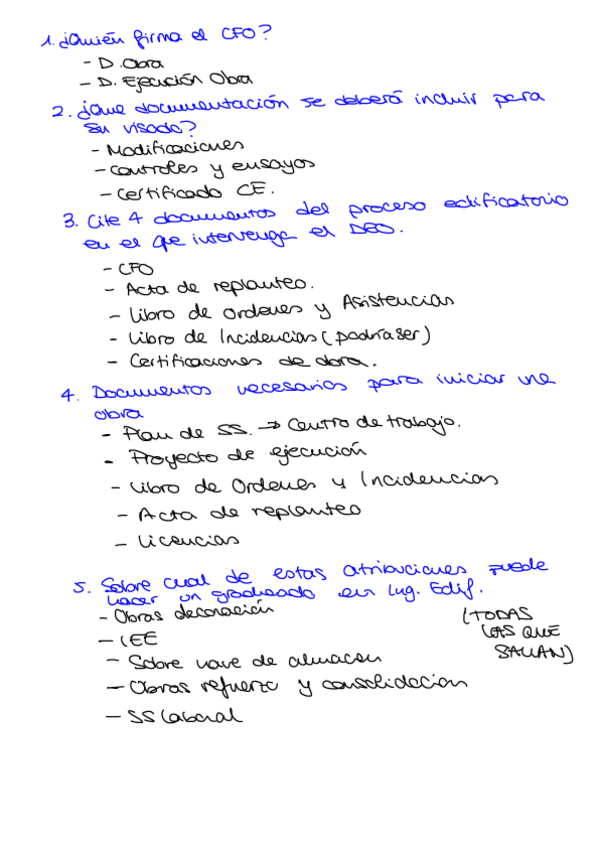 1. ¿Quién firma el CFO?
- D. Obra
- D. Ejecución Obra
2. ¿Que documentación se deberá incluir para
su visado?
- Modificaciones
- Controles y ensayos
- Certificado CE.
3. Cite 4 documentos del proceso edificatorio
en el que intervenga el DEO.
- CFO
- Acta de replanteo.
- Libro de Ordenes y Asistencias
- Libro de Incidencias (podría ser)
- Certificaciones de obra.
4. Documentos necesarios para iniciar una
obra
- Plan de SS. → Centro de trabajo.
- Proyecto de ejecución
- Libro de Ordenes y Incidencias
- Acta de replanteo
- Licencias
5. Sobre cual de estas atribuciones puede
hacer un graduado en Ing. Edif.
- Obras decoración
(TODAS
- IEE
LAS QUE
- Sobre nave de almacen
SALIAN)
- Obras refuerzo y consolidacion
- SS Laboral